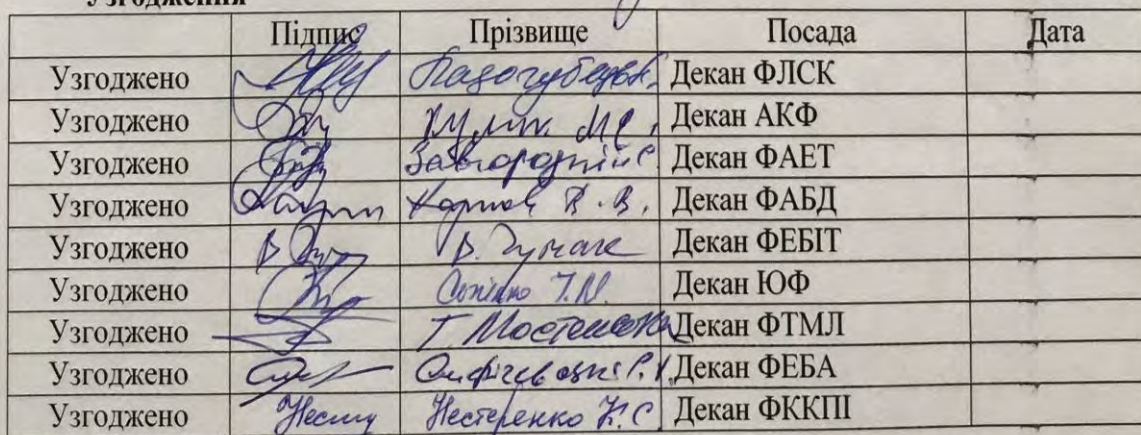 Узгодження
Підпис Прізвище Посада Дата
Узгоджено Декан ФЛСК
Узгоджено Кулик М.С. Декан АКФ
Узгоджено Завгородній С. Декан ФАЕТ
Узгоджено Карпов В.В. Декан ФАБД
Узгоджено В. Чумак Декан ФЕБІТ
Узгоджено Сопілко І.М. Декан ЮФ
Узгоджено Т. Мостенська Декан ФТМЛ
Узгоджено Декан ФЕБА
Узгоджено Нестеренко К.С Декан ФККПІ